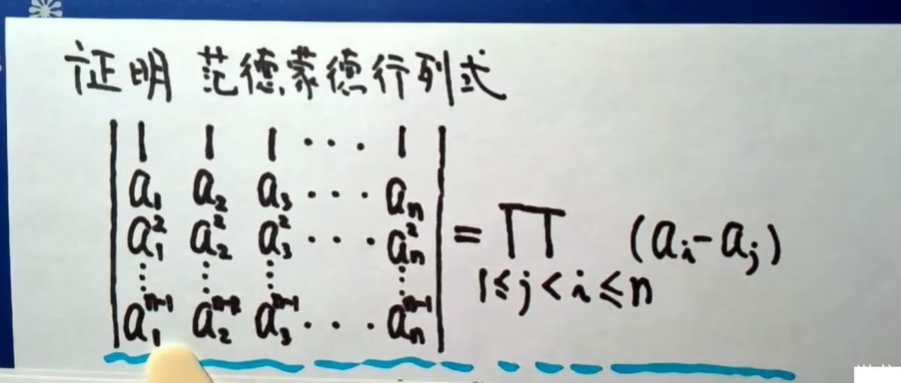 证明 范德蒙德行列式
1 1 1 ··· 1
a₁ a₂ a₃ ··· aₙ
a₁² a₂² a₃² ··· aₙ²
⋮ ⋮ ⋮ ⋮
a₁ⁿ⁻¹ a₂ⁿ⁻¹ a₃ⁿ⁻¹ ··· aₙⁿ⁻¹
= ∏ (aᵢ-aⱼ)
1≤j<i≤n